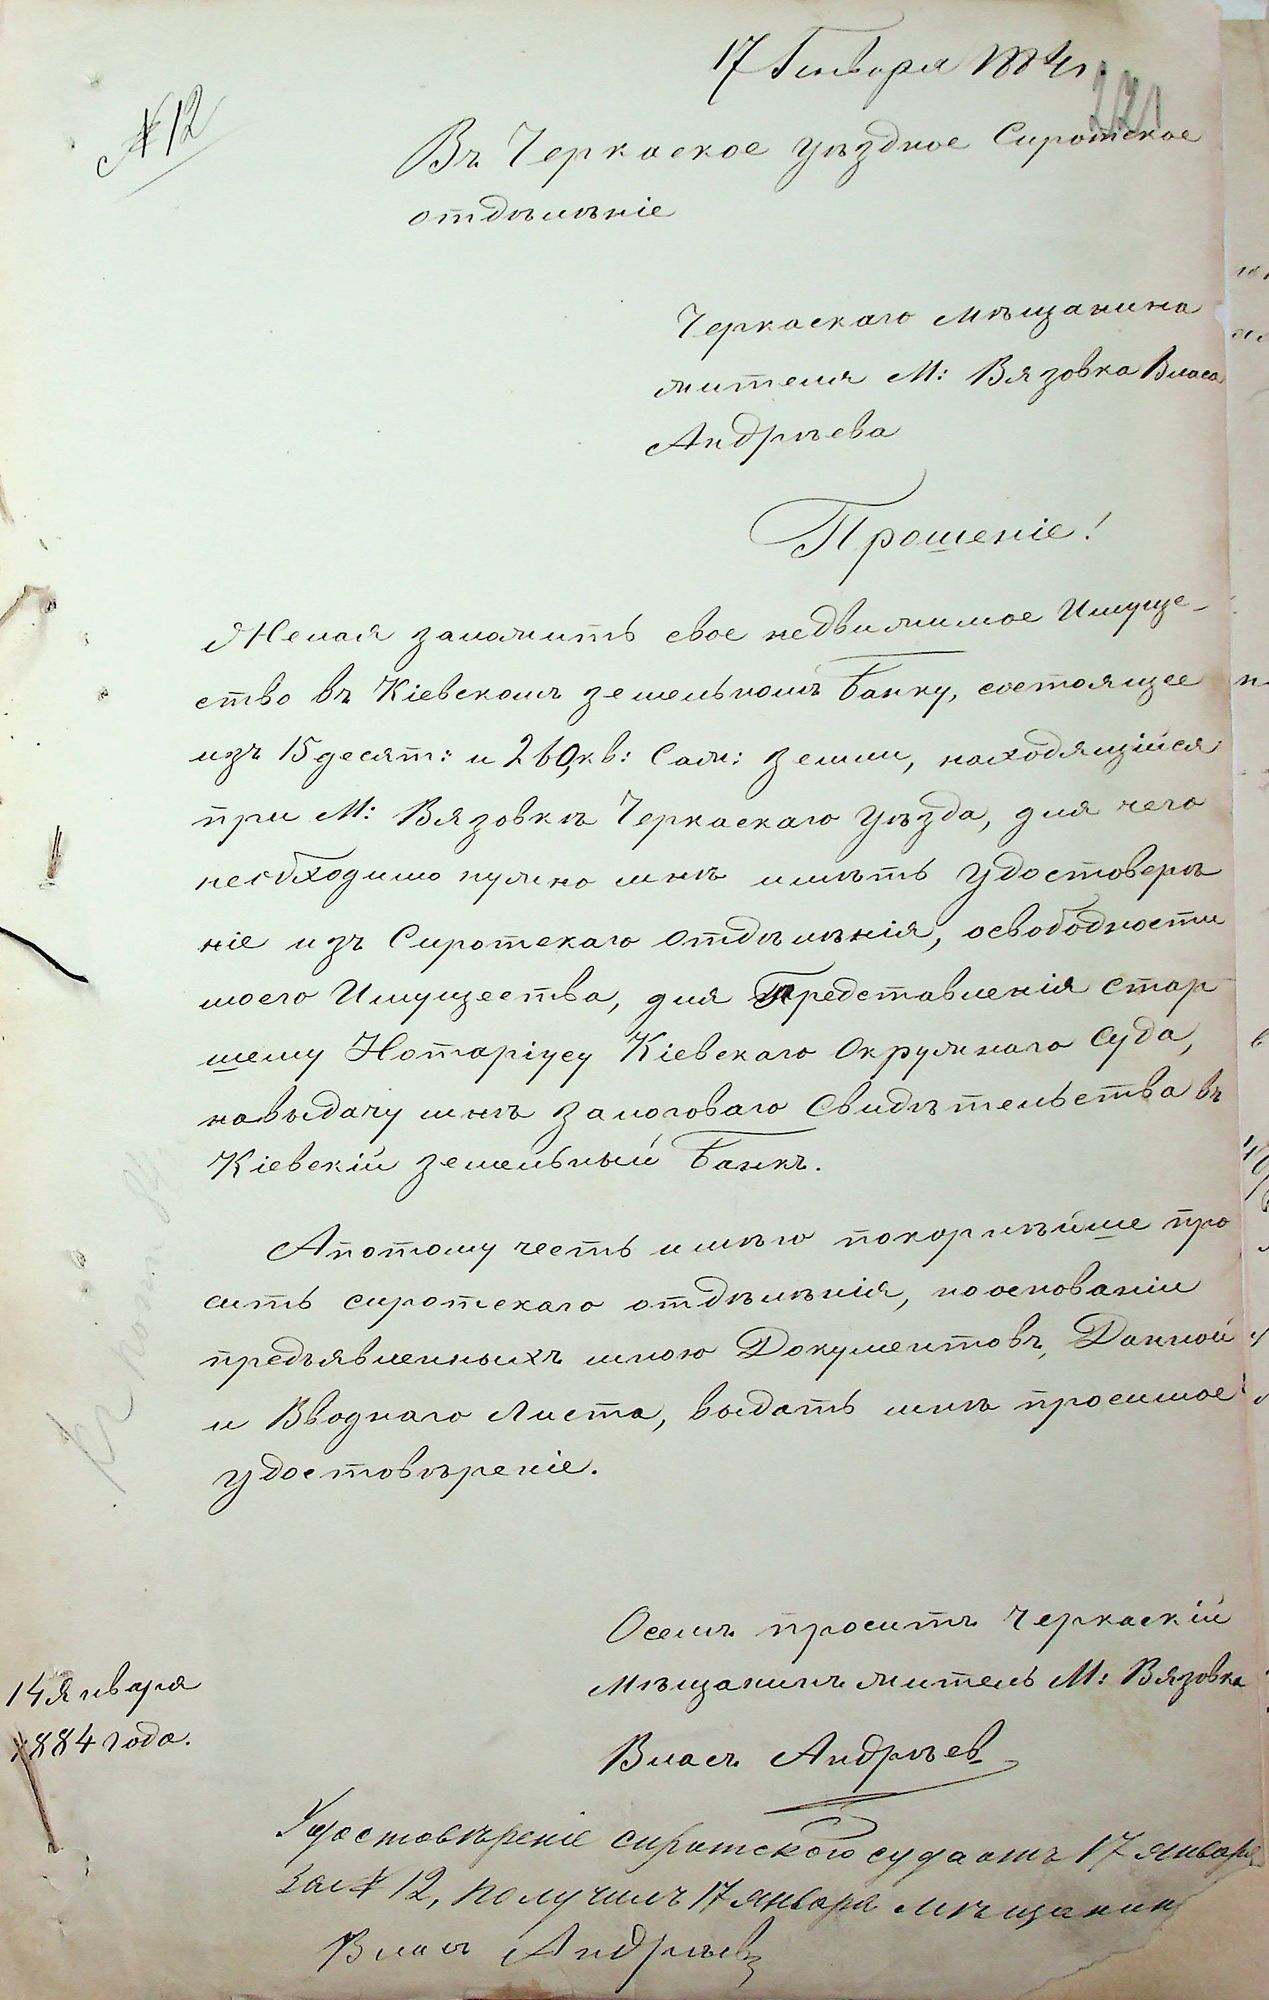 17 Января 1884 г.
221
№ 12
Въ Черкаское уѣздное Сиротское
отдѣлѣніе
Черкаскаго мѣщанина
жителя М: Вязовка Власа
Андрѣева
Прошеніе!
Желая заложить свое недвижимое Имуще-
ство въ Кіевскомъ земельномъ Банку, состоящее
изъ 15 десят: и 260, кв: Саж: земли, находящійся
при М: Вязовкѣ Черкаскаго уѣзда, для чего
необходимо нужно мнѣ имѣть удостоверѣ
ніе изъ Сиротскаго отдѣлѣнія, освободности
моего Имущества, для Представленія стар
шему Нотаріусу Кіевскаго Окружнаго Суда,
навыдачу мнѣ залоговаго Свидѣтельства въ
Кіевскій земельный Банкъ.
Апотому честь имѣю покорнѣйше про
сить сиротскаго отдѣлѣнія, наоснованіи
предъявленныхъ мною Документовъ, Данной
и Вводнаго Листа, выдать мнѣ просимое
удостовѣреніе.
Осемъ проситъ Черкаскій
мѣщанинъ житель М: Вязовка
Власъ Андрѣев
14 Января
1884 года.
Удостовѣреніе сиротского суда отъ 17 января
за № 12, получилъ 17 января мѣщанин
Влас Андрѣевъ